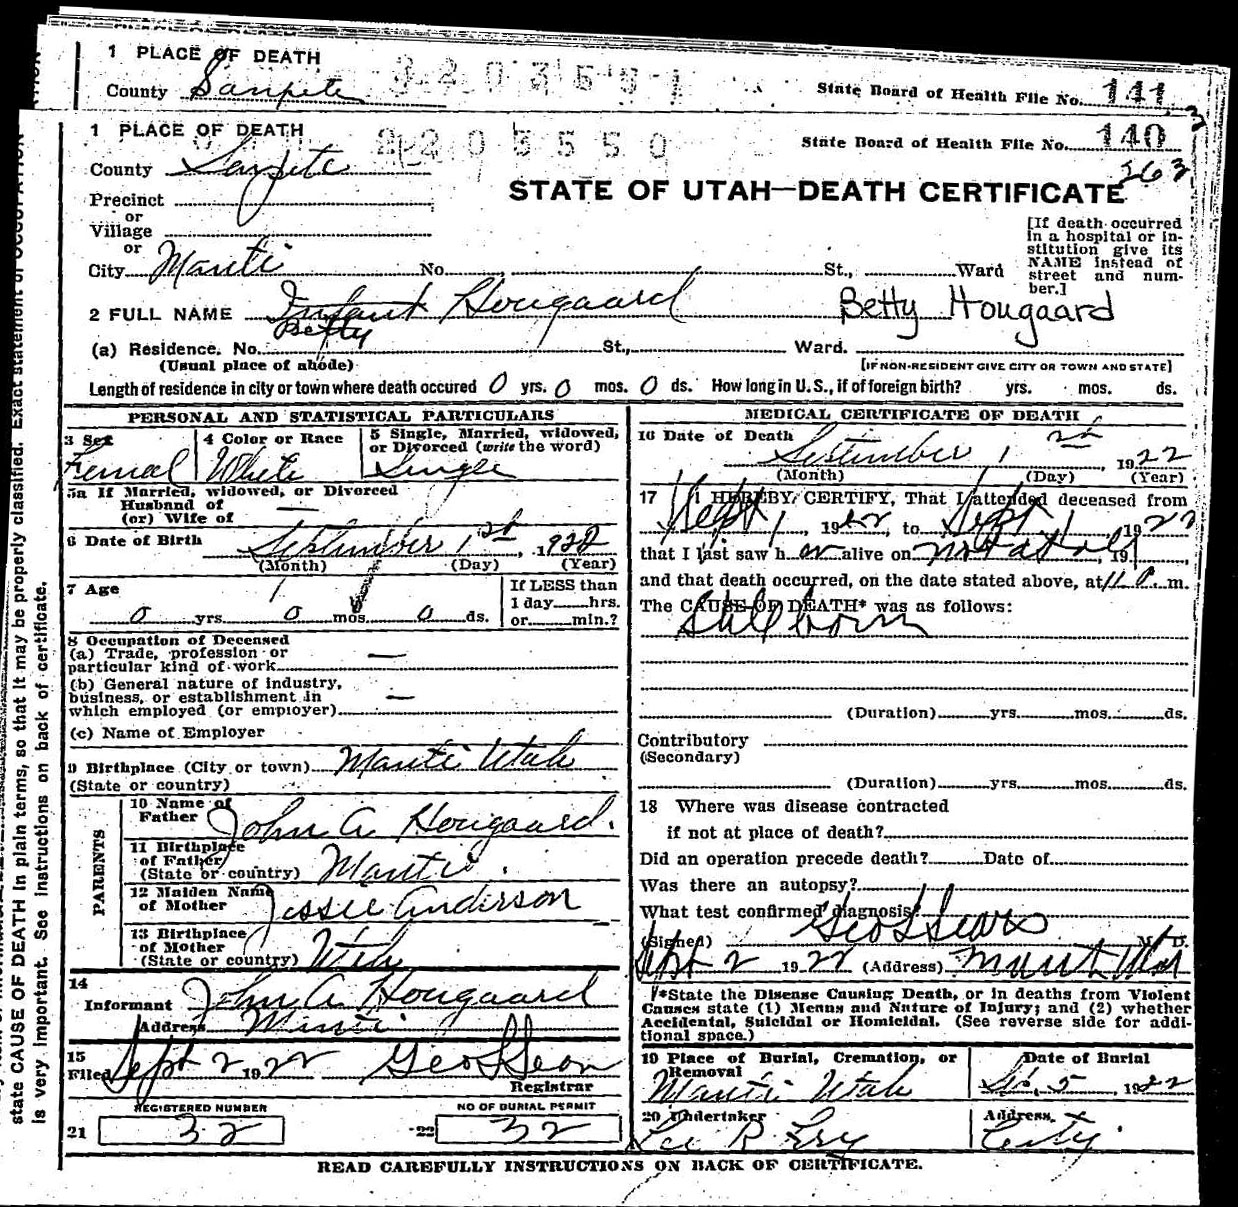 1 PLACE OF DEATH
County Sanpete
State Board of Health File No. 141
1 PLACE OF DEATH
State Board of Health File No. 140
County Sanpete
263
STATE OF UTAH—DEATH CERTIFICATE
Precinct
or
Village
or
City Manti No. St., Ward
[If death occurred
in a hospital or in-
stitution give its
NAME instead of
street and num-
ber.]
2 FULL NAME Infant Hougaard Betty Hougaard
Betty
(a) Residence. No. St., Ward.
(Usual place of abode) [IF NON-RESIDENT GIVE CITY OR TOWN AND STATE]
Length of residence in city or town where death occured 0 yrs. 0 mos. 0 ds. How long in U. S., if of foreign birth? yrs. mos. ds.
PERSONAL AND STATISTICAL PARTICULARS
3 Sex
4 Color or Race
5 Single, Married, widowed,
or Divorced (write the word)
Femal White Single
5a If Married, widowed, or Divorced
Husband of
(or) Wife of —
6 Date of Birth September 1st, 1922
(Month) (Day) (Year)
7 Age
0 yrs. 0 mos. 0 ds.
If LESS than
1 day hrs.
or min.?
8 Occupation of Deceased
(a) Trade, profession or
particular kind of work —
(b) General nature of industry,
business, or establishment in
which employed (or employer) —
(c) Name of Employer
9 Birthplace (City or town) Manti Utah
(State or country)
PARENTS
10 Name of
Father John A Hougaard.
11 Birthplace
of Father
(State or country) Manti.
12 Maiden Name
of Mother Jessie Anderson
13 Birthplace
of Mother
(State or country) Utah
14
Informant John A Hougaard
Address Manti
15
Filed Sept 2 1922
Registrar
REGISTERED NUMBER
21 32
NO OF BURIAL PERMIT
22 32
MEDICAL CERTIFICATE OF DEATH
16 Date of Death
September 1st, 1922
(Month) (Day) (Year)
17 I HEREBY CERTIFY, That I attended deceased from
Sept 1, 1922, to Sept 1 1922
that I last saw h er alive on not at all, 19
and that death occurred, on the date stated above, at 11 P. m.
The CAUSE OF DEATH* was as follows:
Stillborn
(Duration) yrs. mos. ds.
Contributory
(Secondary)
(Duration) yrs. mos. ds.
18 Where was disease contracted
if not at place of death?
Did an operation precede death? Date of
Was there an autopsy?
What test confirmed diagnosis?
(Signed) Geo L Sears M. D.
Sept 2 1922 (Address) Manti Utah
*State the Disease Causing Death, or in deaths from Violent
Causes state (1) Means and Nature of Injury; and (2) whether
Accidental, Suicidal or Homicidal. (See reverse side for addi-
tional space.)
19 Place of Burial, Cremation, or
Removal
Manti Utah
Date of Burial
5, 1922
20 Undertaker
Address.
City.
READ CAREFULLY INSTRUCTIONS ON BACK OF CERTIFICATE.
state CAUSE OF DEATH in plain terms, so that it may be properly classified. Exact statement of OCCUPATION
is very important. See instructions on back of certificate.